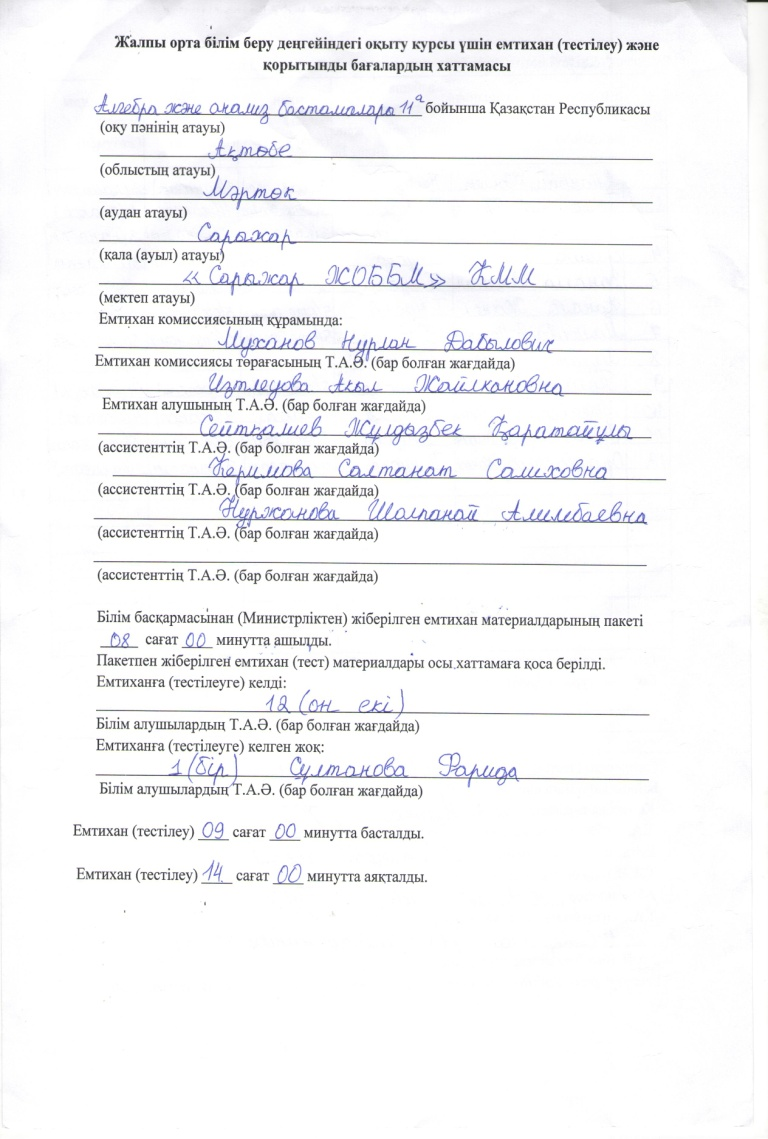 Жалпы орта білім беру деңгейіндегі оқыту курсы үшін емтихан (тестілеу) және
қорытынды бағалардың хаттамасы
Алгебра және анализ бастамалары 11ᵃ бойынша Қазақстан Республикасы
(оқу пәнінің атауы)
Ақтөбе
(облыстың атауы)
Мәртөк
(аудан атауы)
Сарыжар
(қала (ауыл) атауы)
«Сарыжар ЖОББМ» КММ
(мектеп атауы)
Емтихан комиссиясының құрамында:
Муханов Нурлан Дабылович
Емтихан комиссиясы төрағасының Т.А.Ә. (бар болған жағдайда)
Изтлеуова Акыл Жайлхановна
Емтихан алушының Т.А.Ә. (бар болған жағдайда)
Сейтқалиев Жұлдызбек Қаратайұлы
(ассистенттің Т.А.Ә. (бар болған жағдайда)
Керимова Салтанат Салиховна
(ассистенттің Т.А.Ә. (бар болған жағдайда)
Нуржанова Шолпанай
(ассистенттің Т.А.Ә. (бар болған жағдайда)
(ассистенттің Т.А.Ә. (бар болған жағдайда)
Білім басқармасынан (Министрліктен) жіберілген емтихан материалдарының пакеті
08 сағат 00 минутта ашылды.
Пакетпен жіберілген емтихан (тест) материалдары осы хаттамаға қоса берілді.
Емтиханға (тестілеуге) келді:
12 (он екі)
Білім алушылардың Т.А.Ә. (бар болған жағдайда)
Емтиханға (тестілеуге) келген жоқ:
1 (бір) Сұлтанова Фарида
Білім алушылардың Т.А.Ә. (бар болған жағдайда)
Емтихан (тестілеу) 09 сағат 00 минутта басталды.
Емтихан (тестілеу) 14 сағат 00 минутта аяқталды.